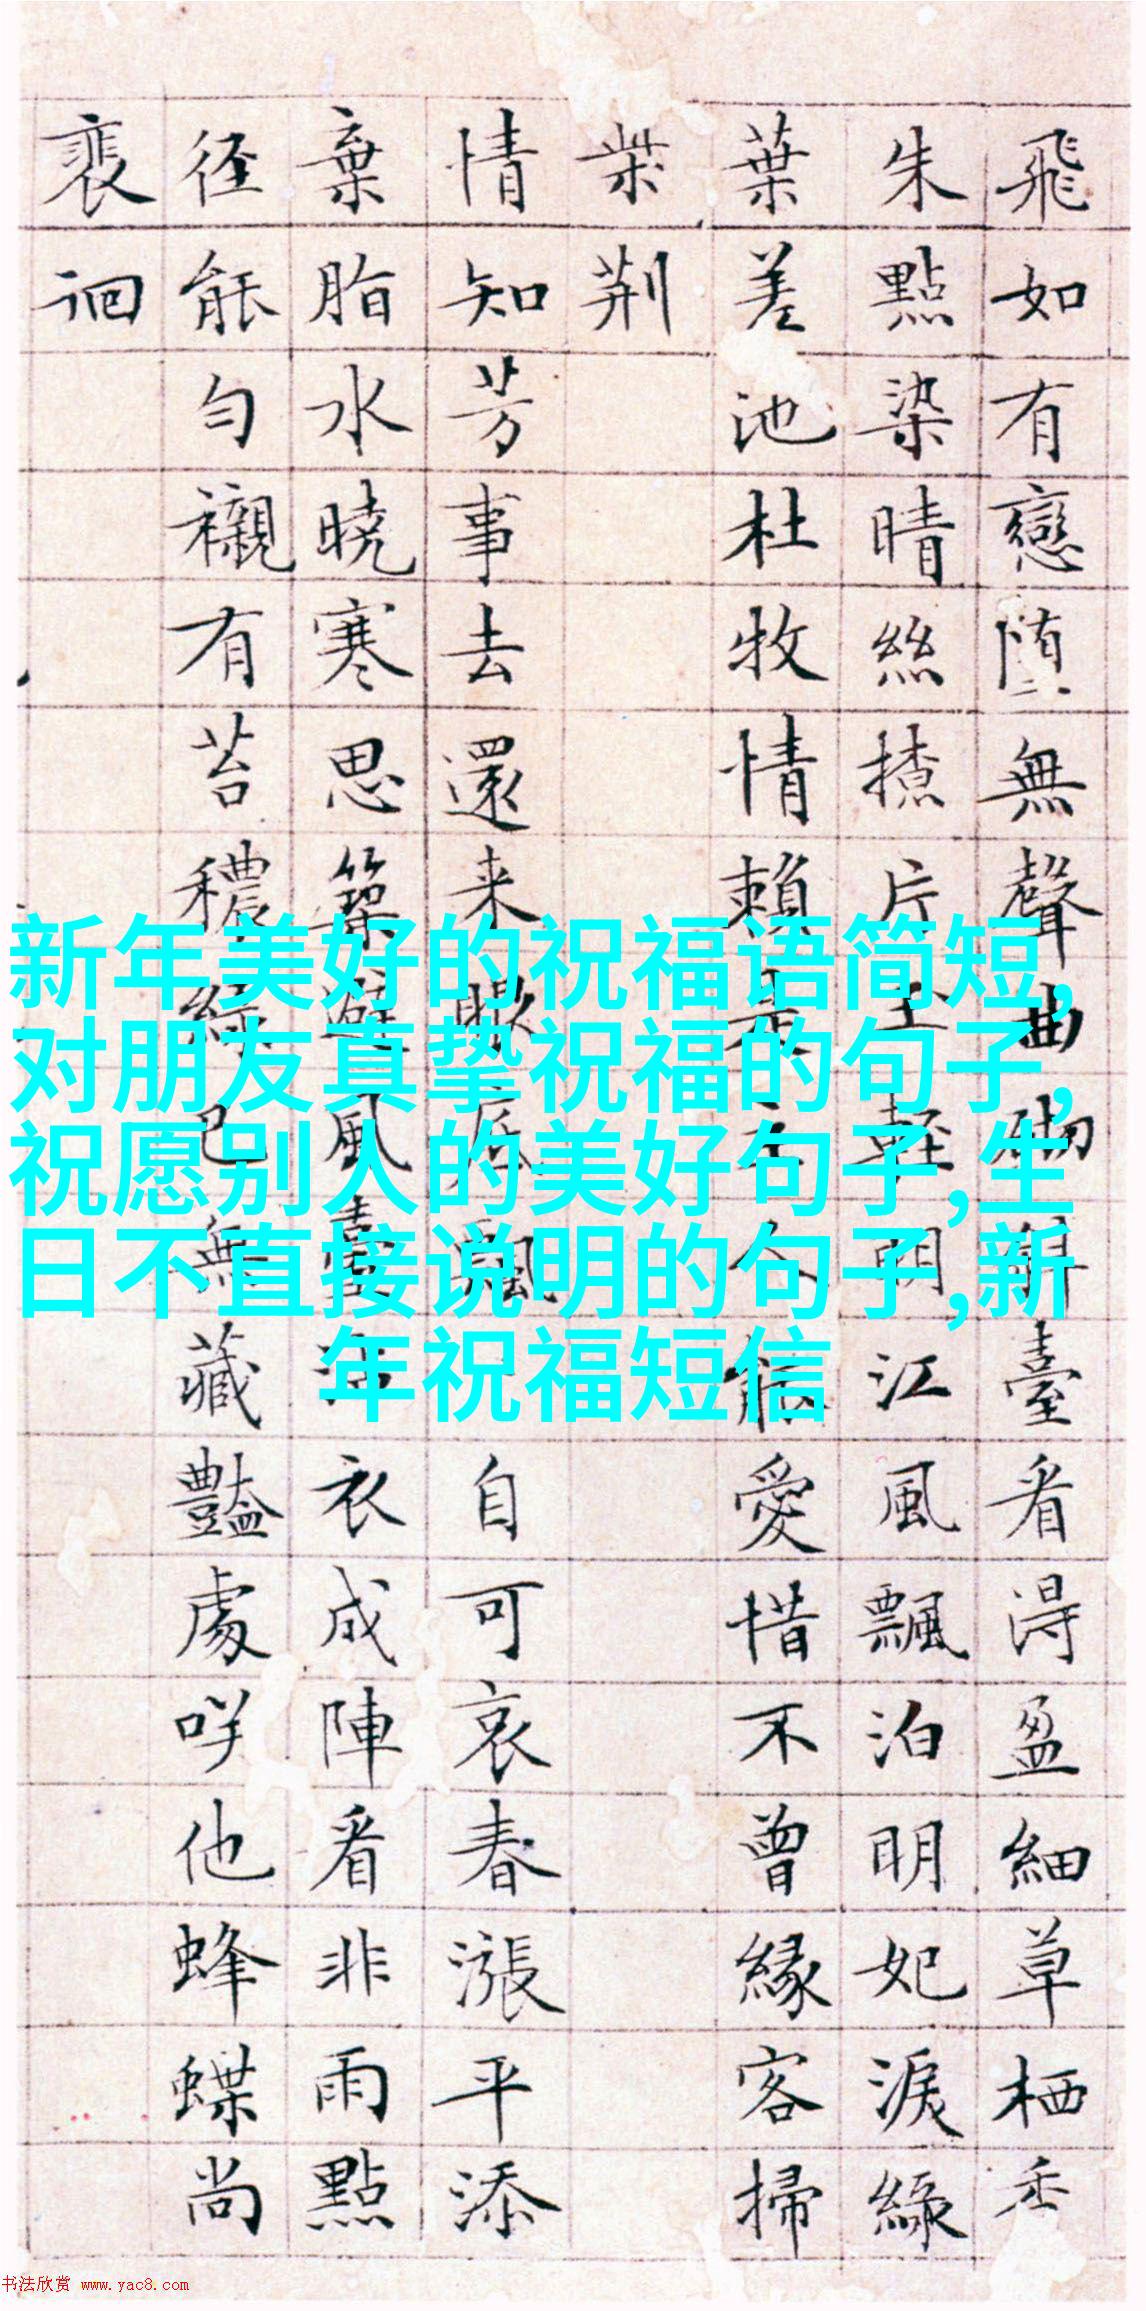 飛如有戀堕無聲曲砌臺看淂盈細草栖香
朱點染晴絲撩片輕朝江風飄泊明妃淚綠
葉差池杜牧情賴是主人能愛惜不曾緣客掃
柴荆
情知芳事去還来眼底飄自可哀春漲平添
棄脂水曉寒思築避風臺沾衣成陣看非雨點
径能勻襯有苔穠綠已無藏豔處咲他蜂蝶尚
裵徊
新年美好的祝福语简短,
对朋友真挚祝福的句子,
祝愿别人的美好句子,生
日不直接说明的句子,新
年祝福短信
书法欣赏 www.yac8.com